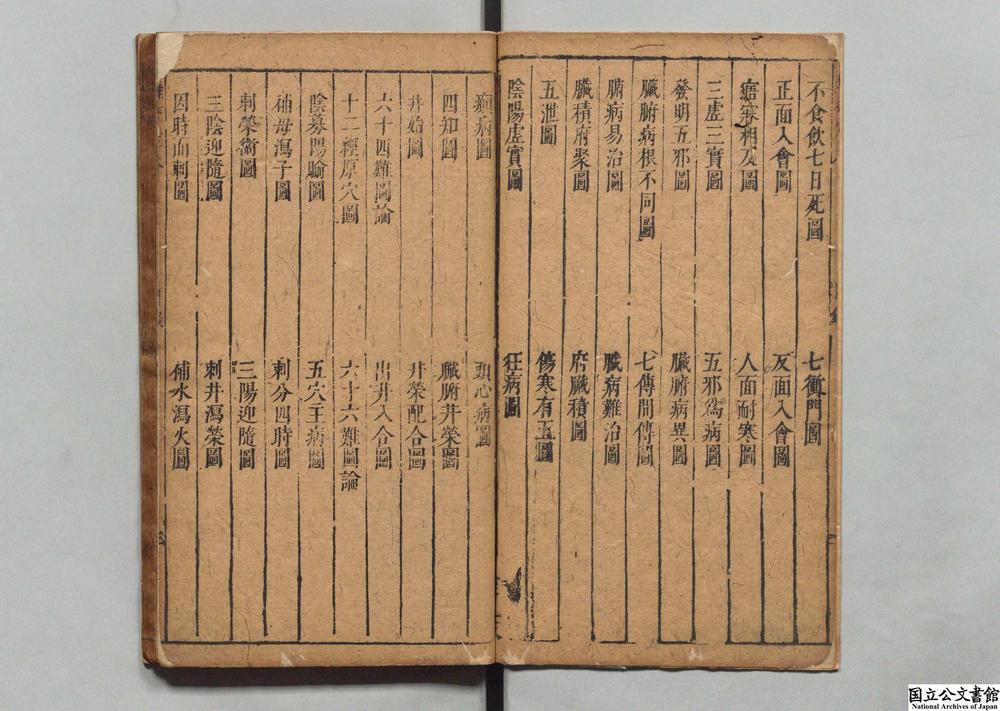 不食飲七日死圖　七衝門圖
正面入會圖　反面入會圖
瘧寒相反圖　人面耐寒圖
三虛三實圖　五邪爲病圖
發明五邪圖　臟腑病異圖
臟腑病根不同圖　七傳間傳圖
腑病易治圖　臟病難治圖
臟積府聚圖　府臟積圖
五泄圖　傷寒有五圖
陰陽虛實圖　狂病圖
癲病圖　頭心病圖
四知圖　臟腑井榮圖
井始圖　井榮配合圖
六十四難圖論　出井入合圖
十二經原穴圖　六十六難圖論
陰募陽腧圖　五穴主病圖
補母瀉子圖　刺分四時圖
刺榮衛圖　三陽迎隨圖
三陰迎隨圖　刺井瀉榮圖
因時而刺圖　補水瀉火圖
国立公文書館
National Archives of Japan